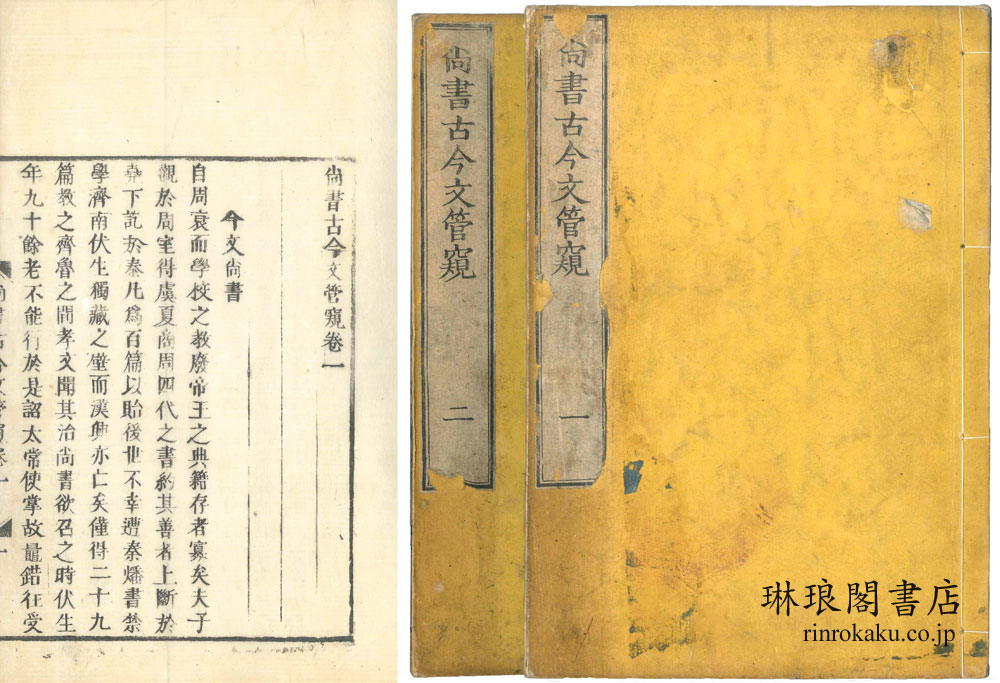 尚書古今文管窺卷一
今文尚書
自周衰而學校之教廢帝王之典籍存者寡矣夫子
觀於周室得虞夏商周四代之書約其善者上斷於
堯下訖於秦凡爲百篇以貽後世不幸遭秦燔書禁
學濟南伏生獨藏之壁而漢興亦亡矣僅得二十九
篇教之齊魯之間孝文聞其治尚書欲召之時伏生
年九十餘老不能行於是詔太常使掌故鼂錯往受
尚書古今文管窺卷一
一
尚書古今文管窺
一
尚書古今文管窺
二
琳琅閣書店
rinrokaku.co.jp